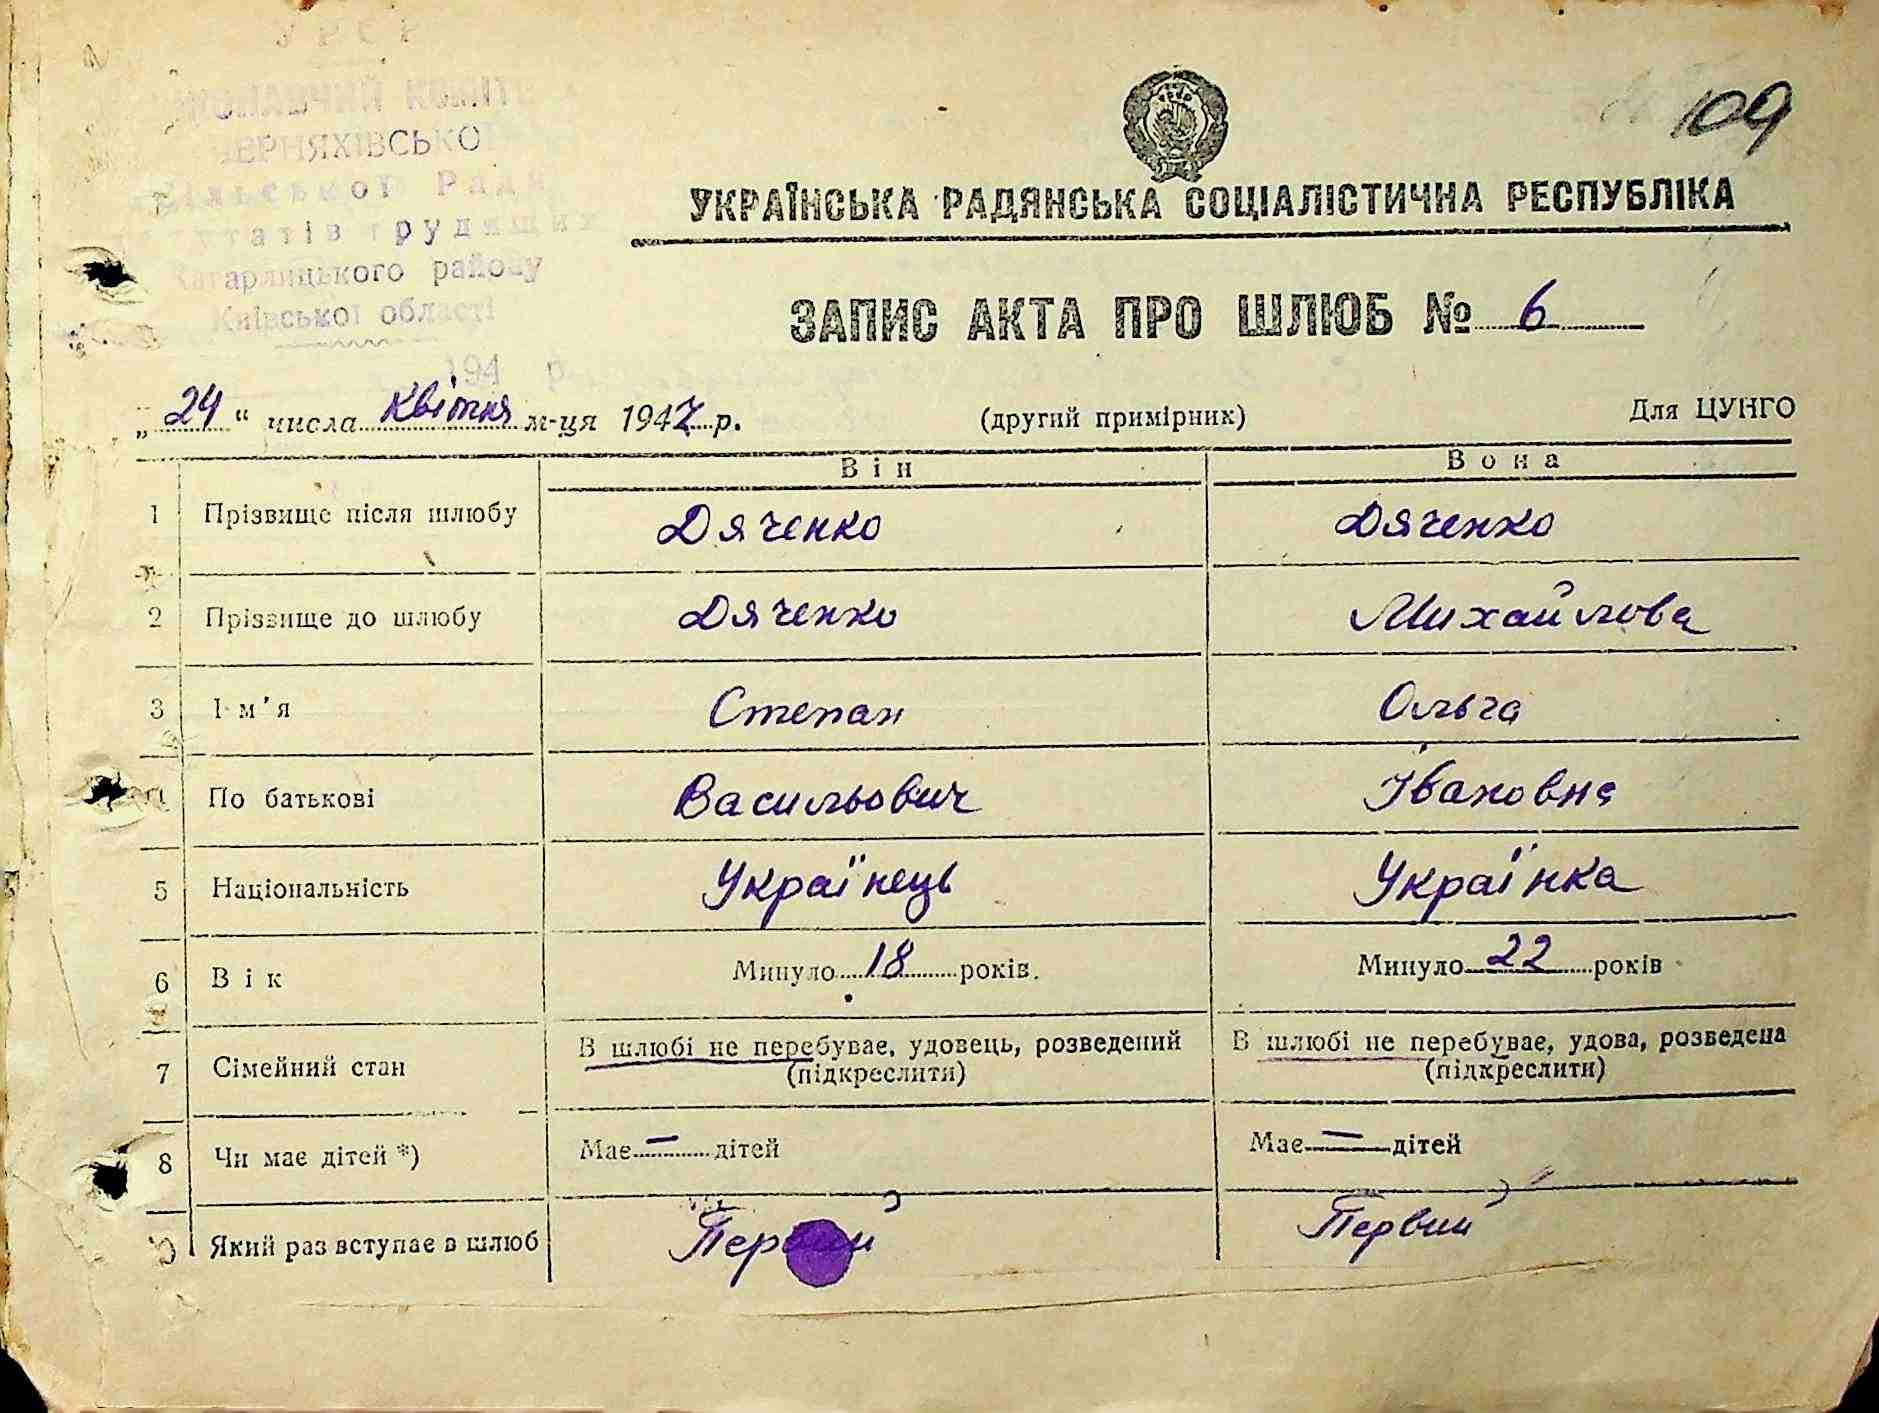 УРСР
ВИКОНАВЧИЙ КОМІТЕТ
ЧЕРНЯХІВСЬКОЇ
Сільської Ради
депутатів трудящих
Кагарлицького району
Київської області
194 р.
109
УКРАЇНСЬКА РАДЯНСЬКА СОЦІАЛІСТИЧНА РЕСПУБЛІКА
ЗАПИС АКТА ПРО ШЛЮБ № 6
„24“ числа Квітня м-ця 1947 р. (другий примірник) Для ЦУНГО
Він Вона
1 Прізвище після шлюбу Дяченко Дяченко
2 Прізвище до шлюбу Дяченко Михайлова
3 Ім'я Степан Ольга
По батькові Васильович Івановна
5 Національність Українець Українка
6 Вік Минуло 18 років. Минуло 22 років
7 Сімейний стан В шлюбі не перебуває, удовець, розведений (підкреслити) В шлюбі не перебуває, удова, розведена (підкреслити)
8 Чи має дітей *) Має — дітей Має — дітей
Який раз вступає в шлюб Первий Первий